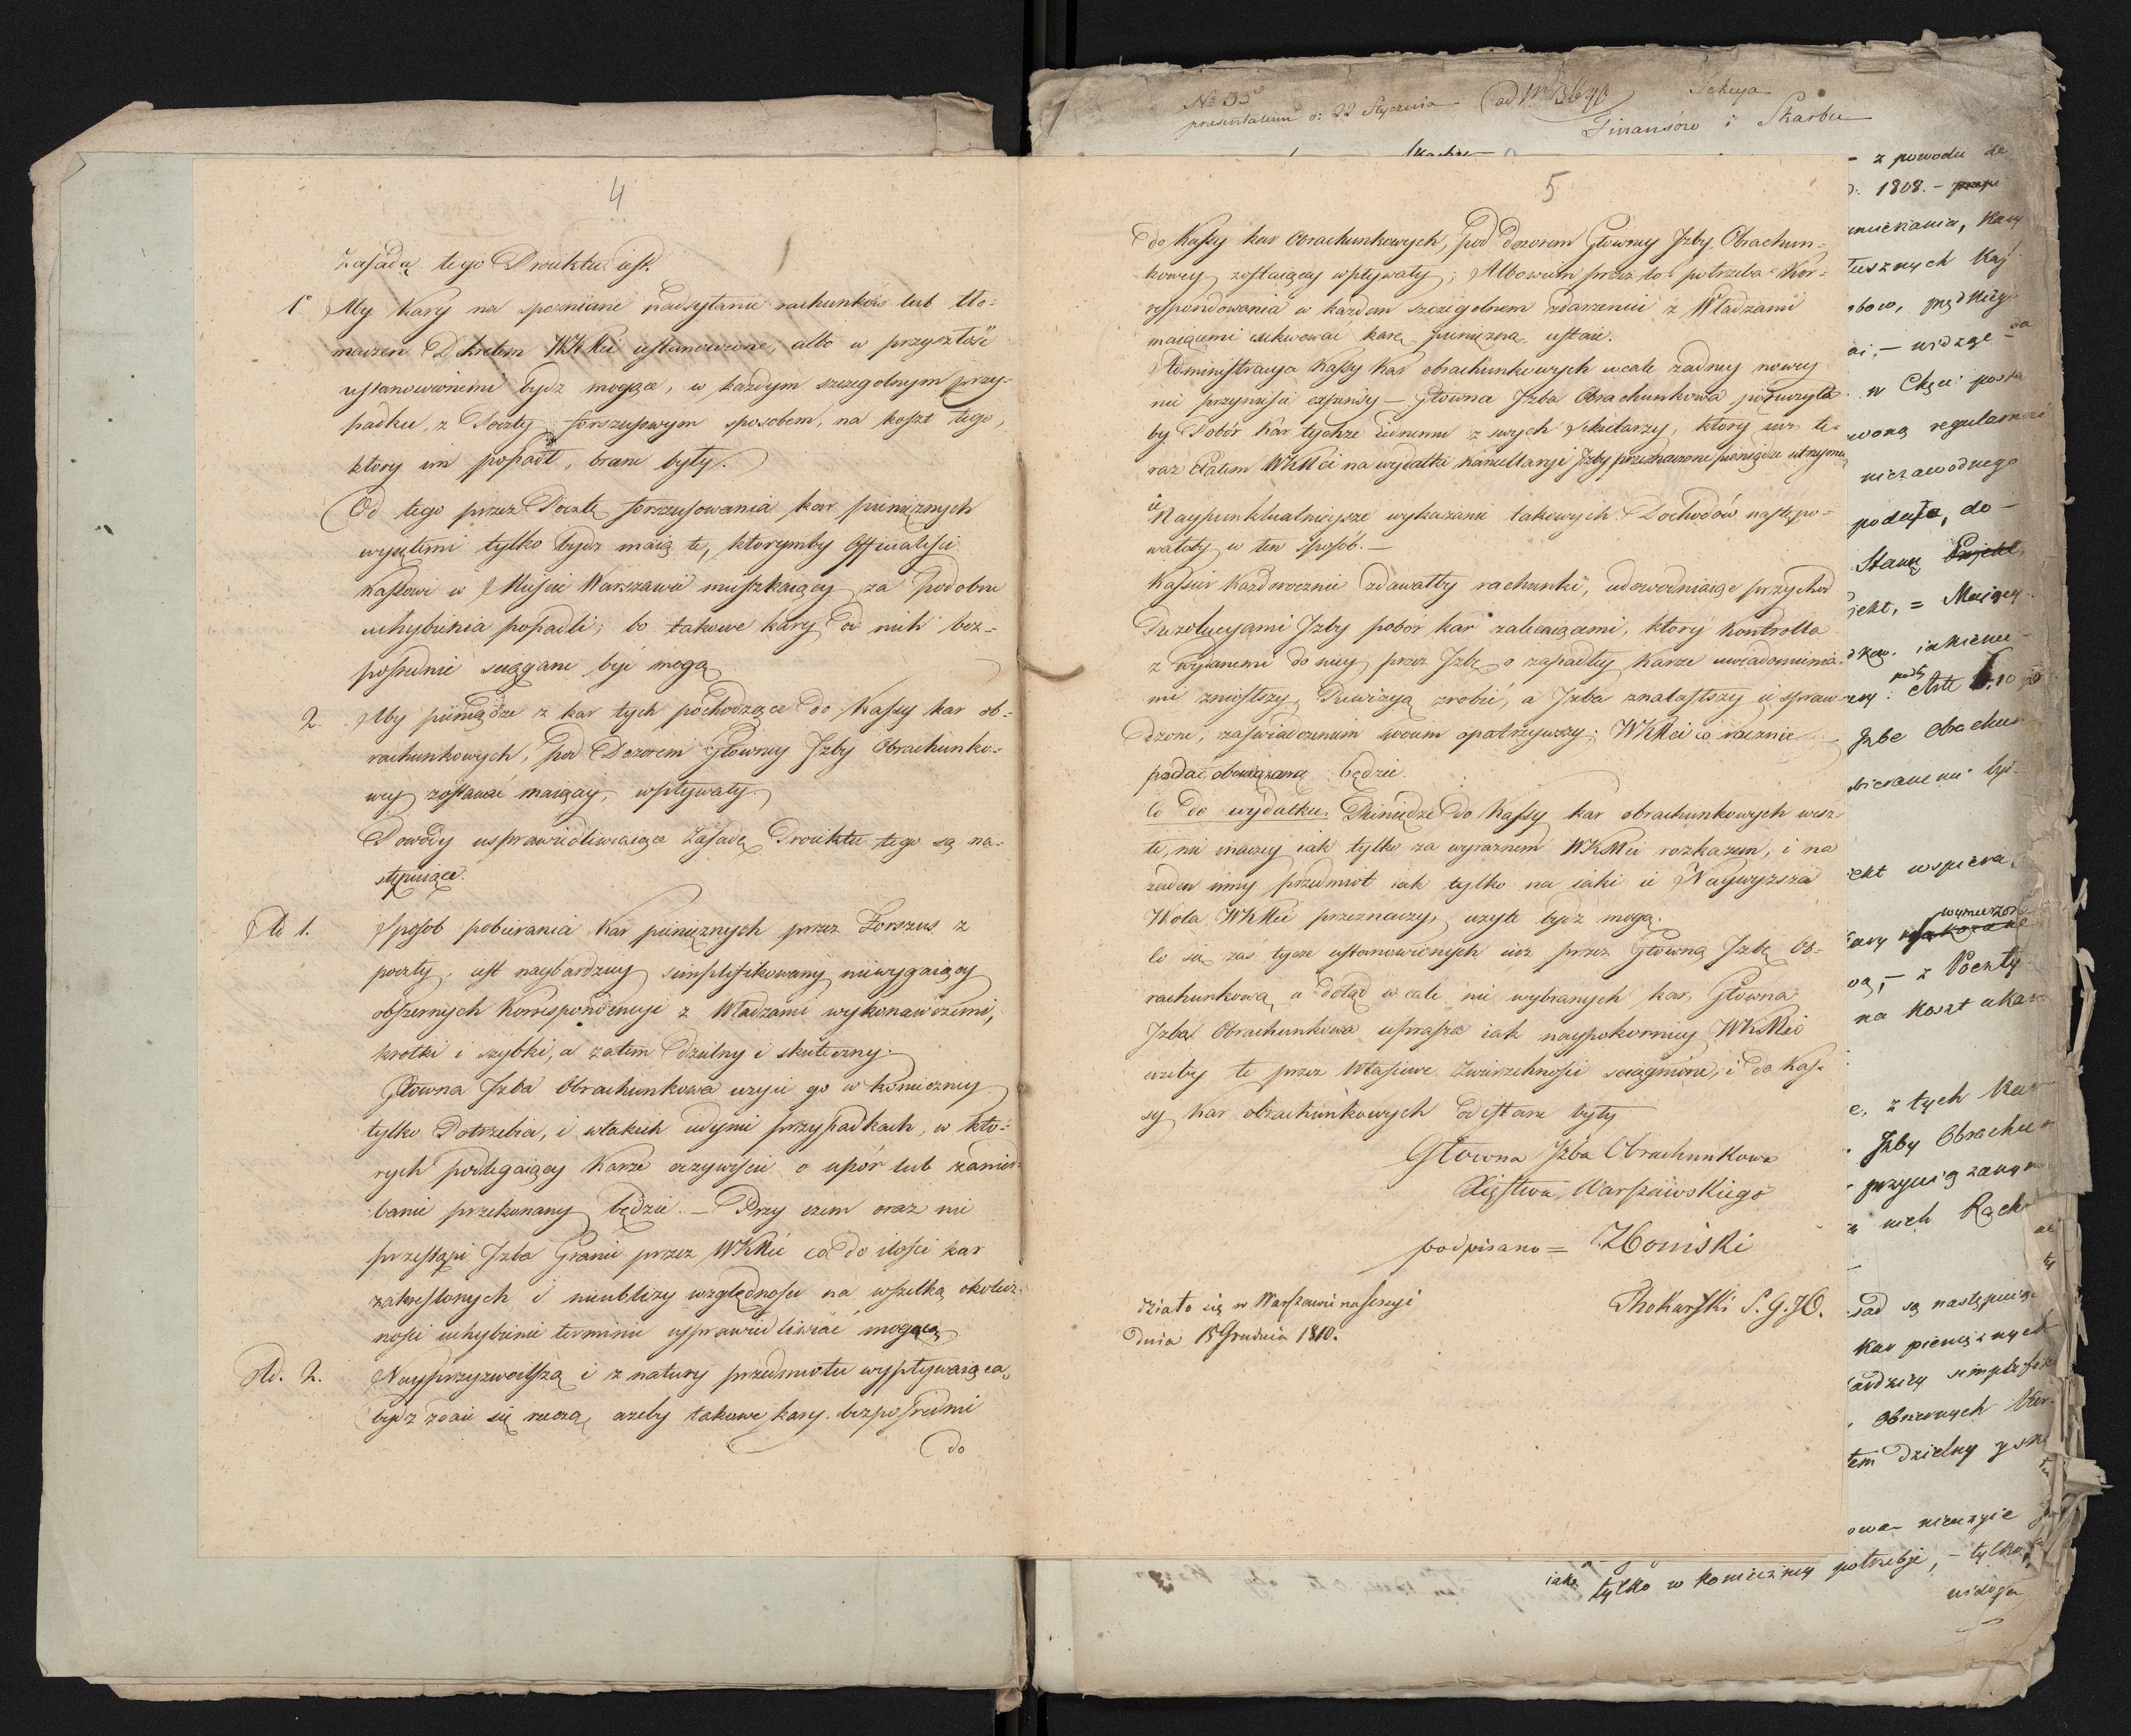 4
Zasadą tego Proiektu iest.
1° Aby Kary na spoznianie nadsyłanie rachunków lub tło=
maczen Dekretem WKMci ustanowione, albo w przyszłość
ustanowionemi bydz mogące, w każdym szczegolnym przy=
padku, z Poczty forszusowym sposobem, na koszt tego,
ktory im popadł, brane były.
Od tego przez Pocztę forszusowania kar pieniężnych
wyiętemi tylko bydz maią te, ktorymby Officialisci
Kassowi w Miescie Warszawie mieszkaiący za podobne
uchybienia popadli; bo takowe kary od nich bez=
posrednie sciągane być mogą
2. Aby pieniądze z kar tych pochodzące do Kassy kar ob=
rachunkowych, pod Dozorem Głowney Jzby Obrachunko=
wey zostawać maiącey, wpływały.
Powody usprawiedliwiaiące Zasadę Proiektu tego są na=
stępuiące.
Ad 1. Sposob pobierania Kar pieniężnych przez Forszus z
poczty, iest naybardziey simplifikowany niewygaiący
obszernych Korrespondencyi z Władzami wykonawczemi,
krotki i szybki, a zatem dzielny i skuteczny.
Głowna Jzba Obrachunkowa uzyie go w konieczney
tylko Potrzebie, i wtakich iedynie przypadkach, w kto=
rych podlegaiący Karze oczywiscie o upór lub zanied=
banie przekonany będzie. — Przy czem oraz nie
przestąpi Jzba Granic przez WKMć co do ilosci kar
zakreslonych i nieubliży względnosci na wszelką okolicz=
nosci uchybienie terminu usprawiedliwiać mogącą
Ad. 2. Nayprzyzwoitszą i z natury przedmiotu wypływaiąca,
bydz zdaie się rzeczą, azeby takowe kary bezposrednie
do
5
do Kassy kar Obrachunkowych, pod dozorem Głowney Jzby Obrachun=
kowey zostaiącey wpływały; Albowiem przez to potrzeba Kor=
respondowania w kazdem szczegolnem zdarzeniu z Władzami
maiącemi exekwować karę pieniezną ustaie.
Administracya Kassy Kar obrachunkowych wcale zadney nowey
nie przyniesie expensy — Głowna Jzba Obrachunkowa poruczyła
by Pobór Kar tychze iednemu z swych Sekretarzy, ktory iuz te=
raz Etatem WKMci na wydatki Kancellaryi Jzby przeznaczone pieniądze utrzymu
ie
Naypunktualnieysze wykazanie takowych Dochodów następo=
wałoby w ten sposób. —
Kassier Kazdorocznie zdawałby rachunki, udowodniaiąc przychod
Rezolucyami Jzby pobor kar zalecaiącemi, ktory Kontrolla
z wydanemi do niey przez Jzbę o zapadłey Karze uwiadomienia=
mi zniosłszy, Rewizyą zrobić, a Jzba znalasłszy ie spraw=
dzone, zaswiadczeniem swoim opatrzywszy; WKMci co rocznie
podać obowiązaną będzie.
Co do wydatku. Pieniądze do Kassy kar obrachunkowych wesz=
łe, nie inaczey iak tylko za wyraznem WKMci rozkazem, i na
zaden inny przedmiot iak tylko na iaki ie Naywyższa
Wola WKMci przeznaczy, uzyte bydz mogą.
Co się zaś tycze ustanowionych iuz przez Głowną Jzbę Ob=
rachunkową a dotąd wcale nie wybranych kar, Głowna
Jzba Obrachunkowa uprasza iak naypokorniey WKMci
azeby te przez Własciwe Zwierzchnosci sciągnione, i do Kas=
sy Kar obrachunkowych odesłane były
Głowna Jzba Obrachunkowa
Xięstwa Warszawskiego
podpisano =
Działo się w Warszawie na sessyi
dnia 15 Grudnia 1810.
S. G. J. O.
№ 35
praesentatum d: 22 Stycznia
Sekcya
Finansów i Skarbu
z powodu
1808.
regularność
niezawodnego
podaię, do
Jzbe Obrachun
wspiera
z Poczty
na koszt ukar
z tych Kar
Jzby Obrachun
nich Rach
sad są następuiące
kar pieniężnych
simplifik
Obszernych Kor
tem dzielny
nieuzyie
iako tylko w konieczney potrzebie, — tylko